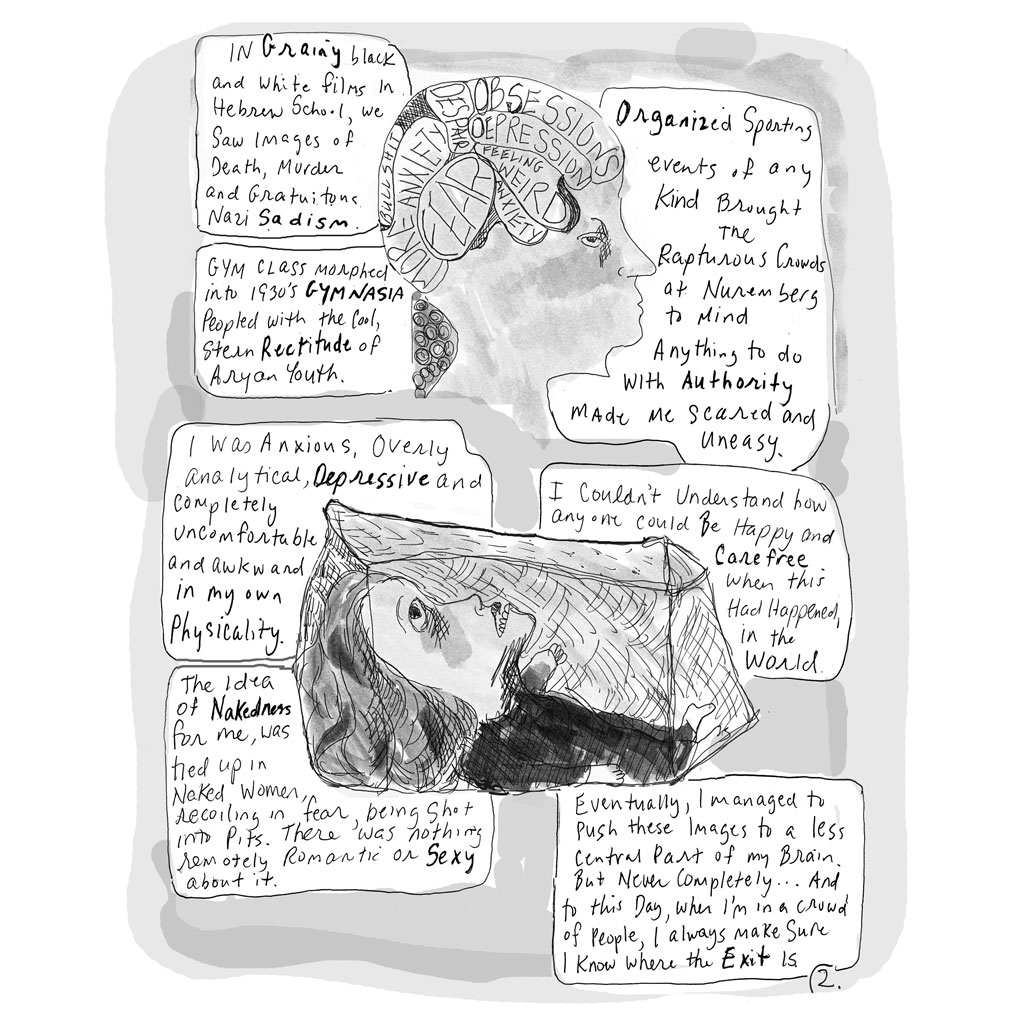 IN Grainy black
and white films In
Hebrew School, we
Saw Images of
Death, Murder
and Gratuitous
Nazi Sadism.
GYM CLASS morphed
into 1930's GYMNASIA
Peopled with the Cool,
Stern Rectitude of
Aryan Youth.
BULLSHIT
MORE ANXIETY
DESPAIR
OBSESSIONS
DEPRESSION
FEELING
WEIRD
ANXIETY
FEAR
Organized Sporting
events of any
Kind Brought
The
Rapturous Crowds
at Nuremberg
to Mind
Anything to do
With Authority
MADE Me Scared and
Uneasy.
I was Anxious, Overly
analytical, Depressive and
completely
uncomfortable
and awkward
in my own
Physicality.
I Couldn't Understand how
anyone could Be Happy and
Carefree
when this
Had Happened,
in the
World.
The Idea
of Nakedness
for me, was
tied up in
Naked Women,
recoiling in fear, being shot
into Pits. There was nothing
remotely Romantic or Sexy
about it.
Eventually, I managed to
Push these Images to a less
Central Part of my Brain.
But Never Completely... And
to this Day, when I'm in a crowd
of People, I always make Sure
I Know where the Exit Is.
2.